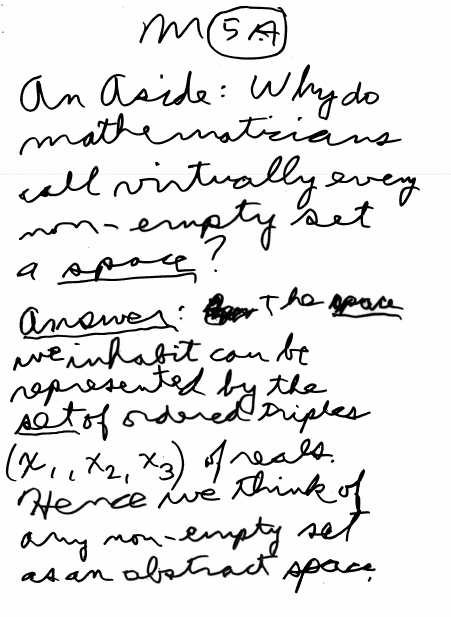 M 5A
An Aside: Why do
mathematicians
call virtually every
non-empty set
a space?
Answer: The space
we inhabit can be
represented by the
set of ordered triples
(x₁, x₂, x₃) of reals.
Hence we think of
any non-empty set
as an abstract space.